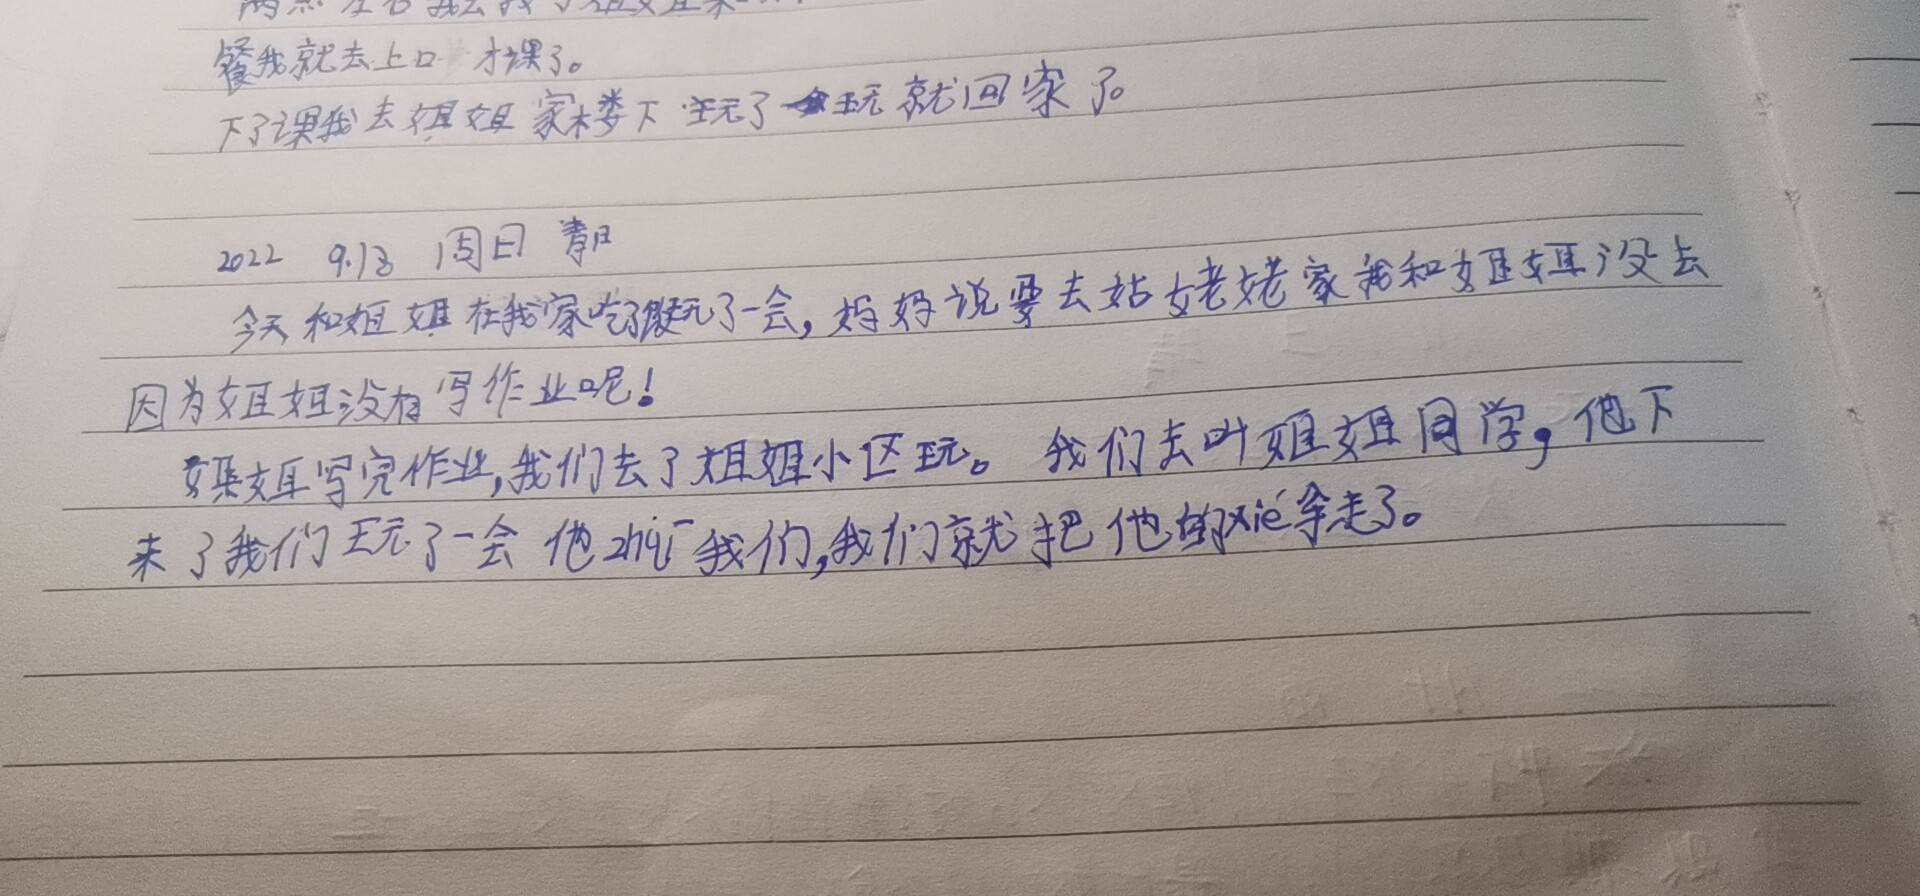 餐我就去上口才课了。
下了课我去姐姐家楼下玩了玩就回家了。
2022 9.13 周日 晴
今天和姐姐在我家吃了饭玩了一会,妈妈说要去姑姥姥家我和姐姐没去
因为姐姐没有写作业呢!
姐姐写完作业,我们去了姐姐小区玩。 我们去叫姐姐同学,他下
来了我们玩了一会他zhuī我们,我们就把他的xié拿走了。